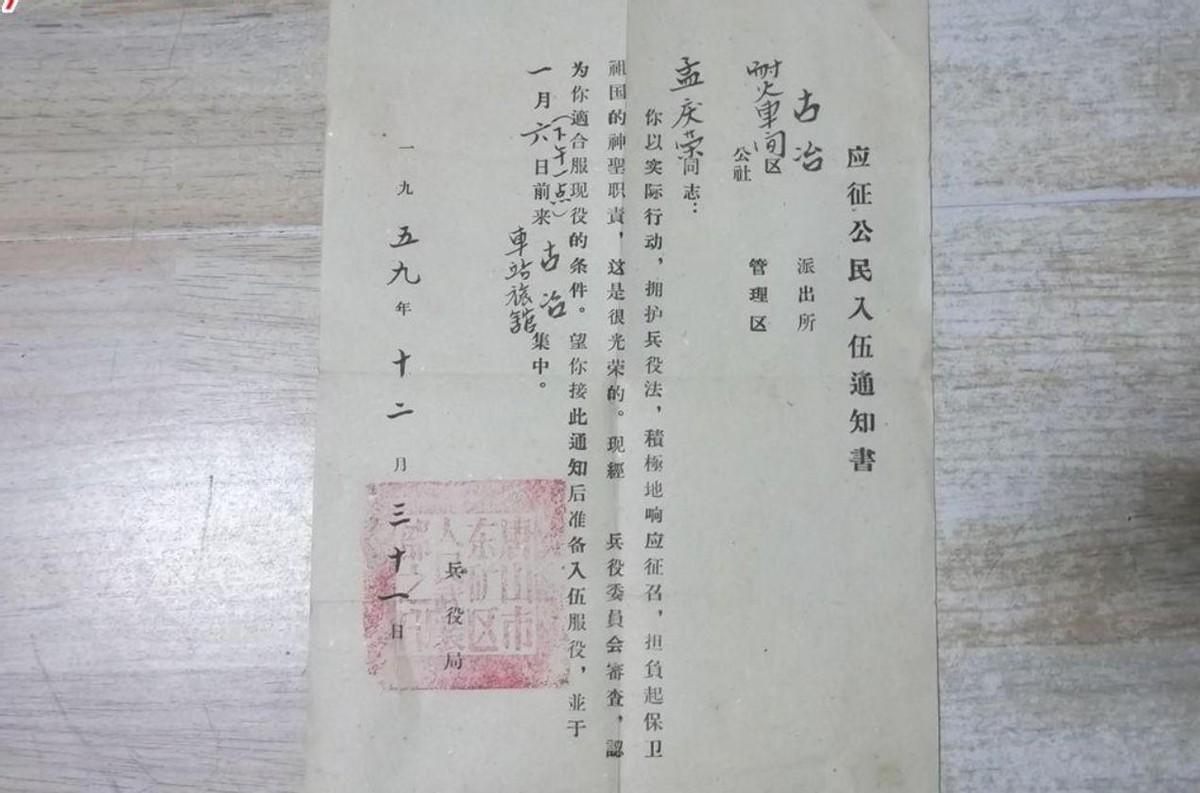 应征公民入伍通知書
古冶 派出所
耐火車间区 管理区
公社
孟庆荣同志：
你以实际行动，拥护兵役法，積極地响应征召，担負起保卫
祖国的神聖职責，这是很光荣的。现經 兵役委員会審查，認
为你適合服现役的条件。望你接此通知后准备入伍服役，並于
一月六日前来古冶車站旅舘集中。
（下午一点）
兵役局
一九五九年十二月三十一日
唐山市
东矿区
人